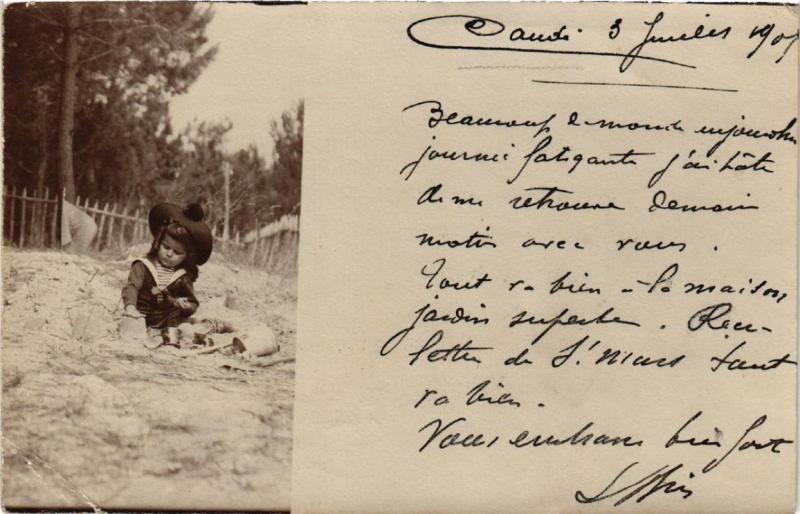 3 Juillet 190
Beaucoup de monde aujourd'hui
journée fatigante j'ai hâte
de me retrouver demain
matin avec vous.
Tout va bien à la maison
jardin superbe. Reçu
lettre de St Mars tout
va bien.
Vous embrasse bien fort